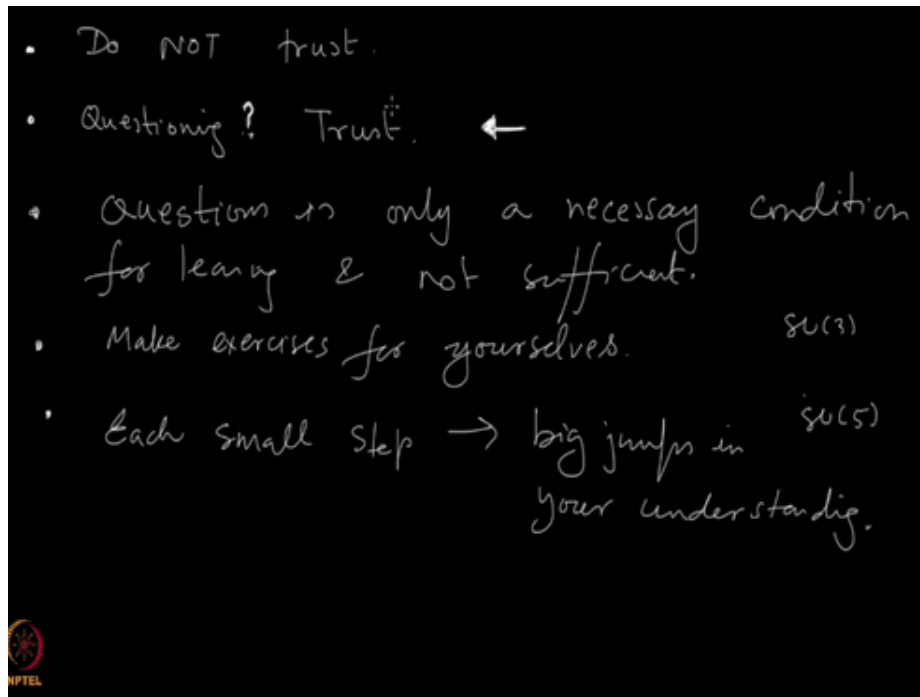 • Do NOT trust.
• Questioning? Trust. ←
• Questions is only a necessary condition
for learnig & not sufficient.
• Make exercises for yourselves. SU(3)
• Each small step → big jumps in SU(5)
your understandig.
NPTEL